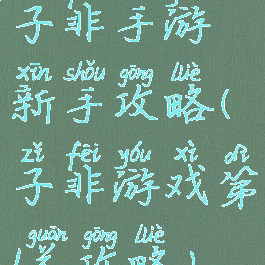 子非手游
xīn shǒu gōng lüè
新手攻略(
zǐ fēi yóu xì dì
子非游戏第
guān gōng lüè
关攻略)